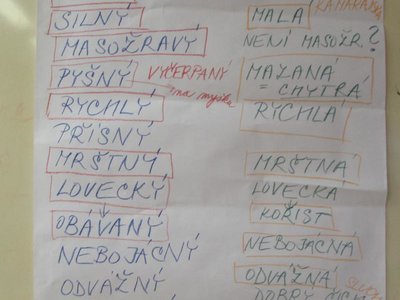 SILNÝ
MASOŽRAVÝ
PYŠNÝ
VYČERPANÝ
na myšku
RYCHLÝ
PŘÍSNÝ
MRŠTNÝ
LOVECKÝ
OBÁVANÝ
NEBOJÁCNÝ
ODVÁŽNÝ
MALÁ
NENÍ MASOŽR.?
MAZANÁ
= CHYTRÁ
RYCHLÁ
MRŠTNÁ
LOVECKÁ
KOŘIST
NEBOJÁCNÁ
ODVÁŽNÁ